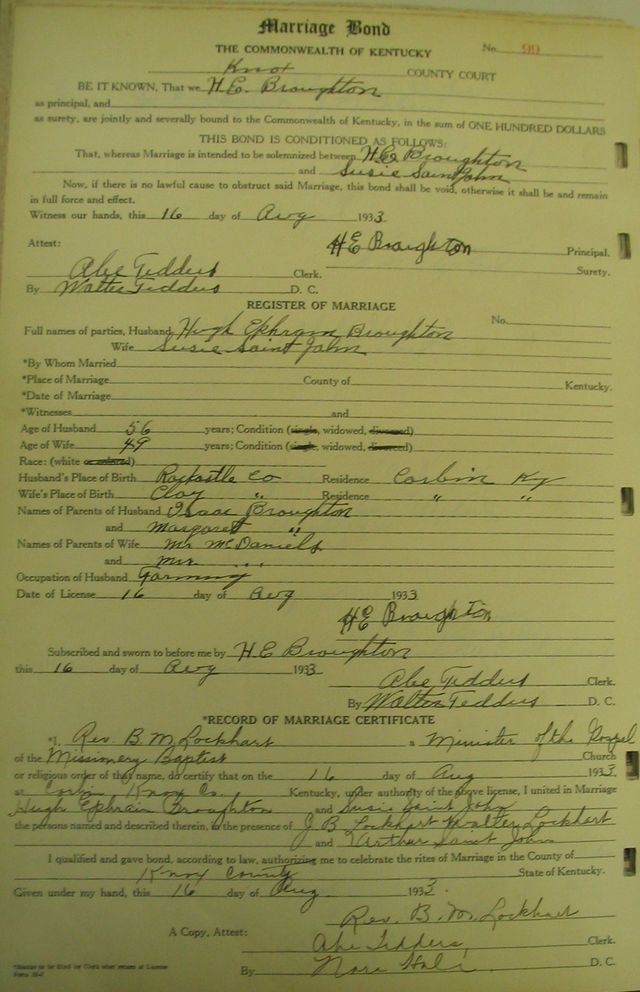 Marriage Bond
THE COMMONWEALTH OF KENTUCKY No. 99
Knox COUNTY COURT
BE IT KNOWN, That we H.E. Broughton
as principal, and
as surety, are jointly and severally bound to the Commonwealth of Kentucky, in the sum of ONE HUNDRED DOLLARS
THIS BOND IS CONDITIONED AS FOLLOWS:
That, whereas Marriage is intended to be solemnized between H.E. Broughton
and Susie Saint John
Now, if there is no lawful cause to obstruct said Marriage, this bond shall be void, otherwise it shall be and remain
in full force and effect.
Witness our hands, this 16 day of Aug 1933
Attest: HE Broughton Principal.
Abe Tedders Clerk. Surety.
By Walter Tedders D. C.
REGISTER OF MARRIAGE
No.
Full names of parties, Husband Hugh Ephram Broughton
Wife Susie Saint John
*By Whom Married
*Place of Marriage County of Kentucky.
*Date of Marriage
*Witnesses and
Age of Husband 56 years; Condition (single, widowed, divorced)
Age of Wife 49 years; Condition (single, widowed, divorced)
Race: (white or colored)
Husband's Place of Birth Rockastle Co Residence Corbin Ky
Wife's Place of Birth Clay " Residence " "
Names of Parents of Husband Isaac Broughton
and Margaret "
Names of Parents of Wife Mr McDaniels
and Mrs " "
Occupation of Husband Farming
Date of License 16 day of Aug 1933
HE Broughton
Subscribed and sworn to before me by H E Broughton
this 16 day of Aug 1933
Abe Tedders Clerk.
By Walter Tedders D. C.
*RECORD OF MARRIAGE CERTIFICATE
*I, Rev. B. M. Lockhart a Minister of the Gospel
of the Missionery Baptist Church
or religious order of that name, do certify that on the 16 day of Aug 1933
at Corbin, Knox Co. Kentucky, under authority of the above license, I united in Marriage
Hugh Ephrain Broughton and Susie Saint John
the persons named and described therein, in the presence of J B Lockhart Walter Lockhart
and Arthur Saint John
I qualified and gave bond, according to law, authorizing me to celebrate the rites of Marriage in the County of
Knox County State of Kentucky.
Given under my hand, this 16 day of Aug 1933.
Rev. B. M. Lockhart
A Copy, Attest: Abe Tedders, Clerk.
By D. C.
*Blanks to be filled by Clerk after return of License